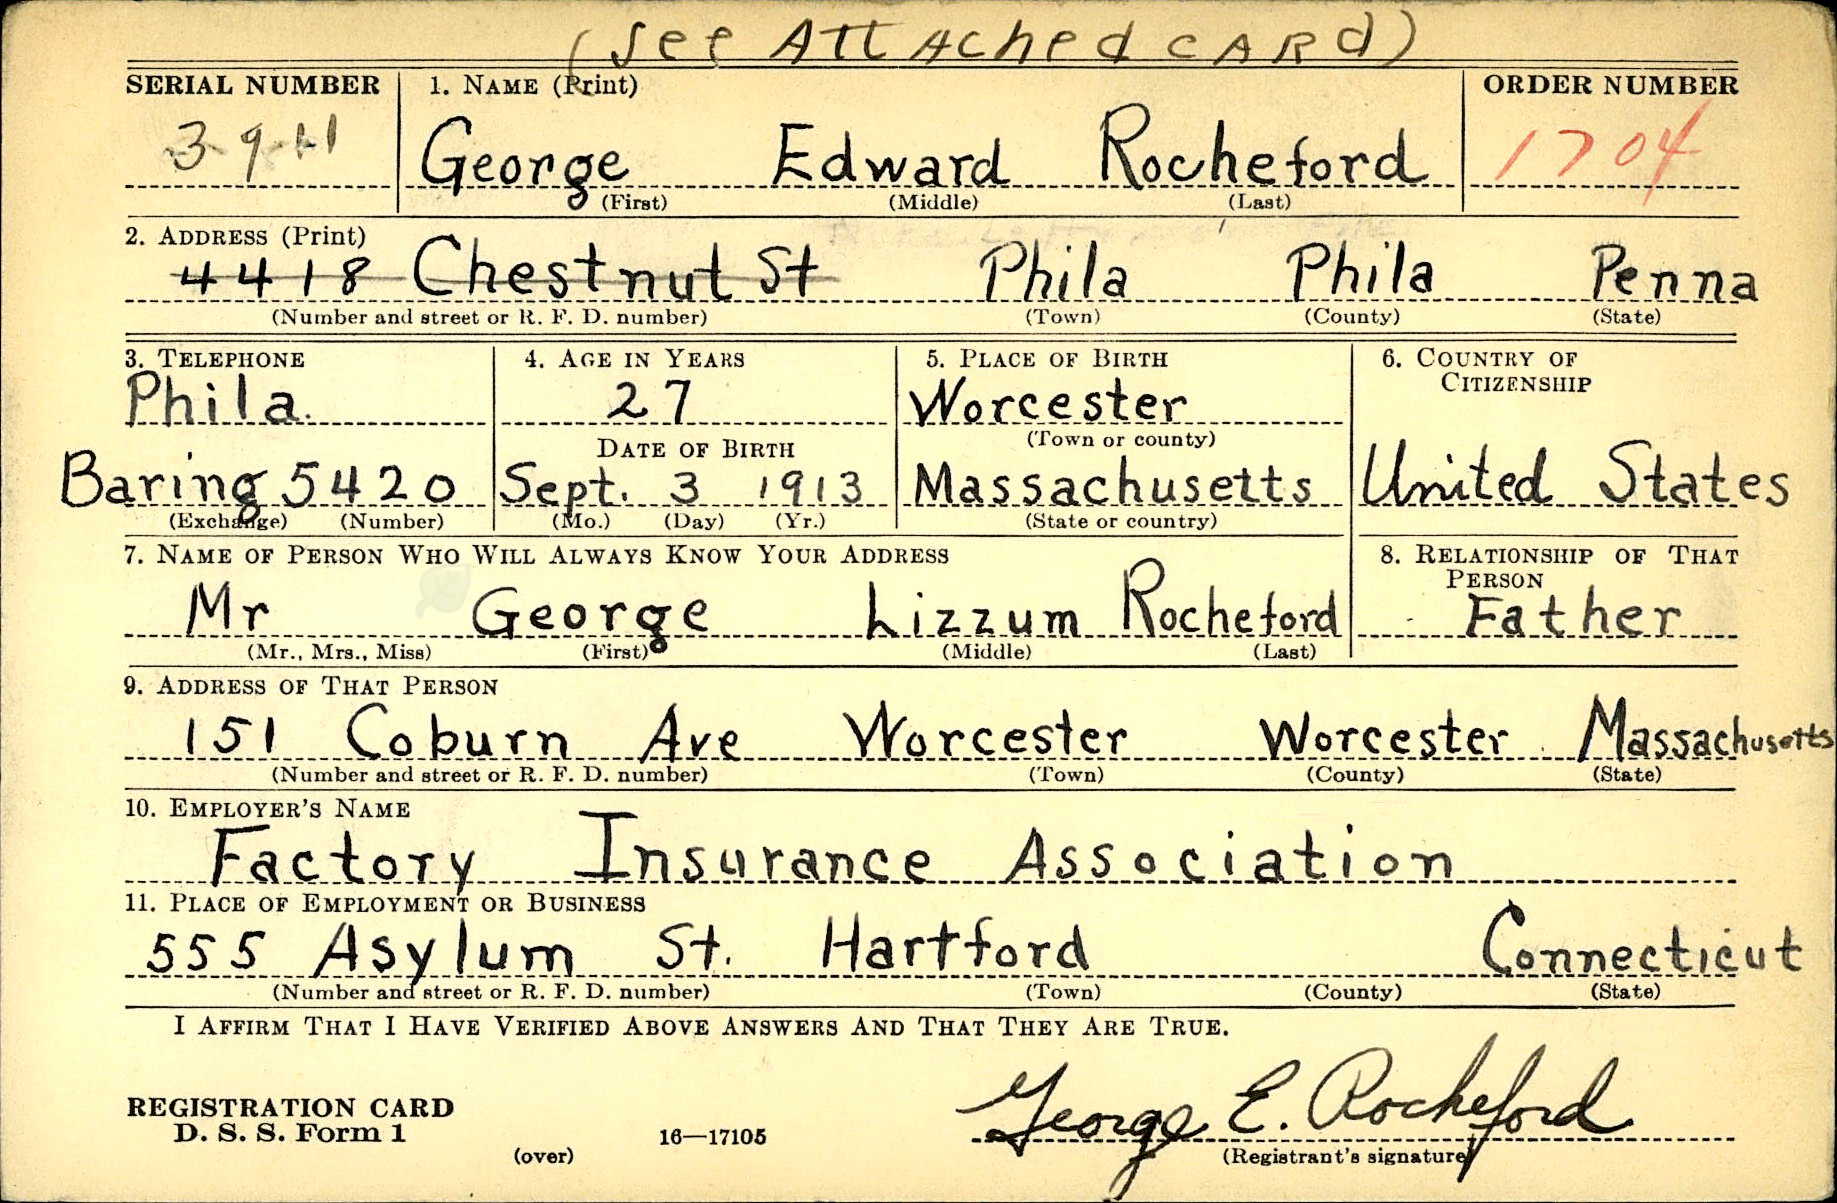 (See Attached Card)
SERIAL NUMBER 1. NAME (Print) ORDER NUMBER
3911 George Edward Rocheford 1704
(First) (Middle) (Last)
2. ADDRESS (Print)
4418 Chestnut St Phila Phila Penna
(Number and street or R. F. D. number) (Town) (County) (State)
3. TELEPHONE 4. AGE IN YEARS 5. PLACE OF BIRTH 6. COUNTRY OF CITIZENSHIP
Phila. 27 Worcester
DATE OF BIRTH (Town or county)
Baring 5420 Sept. 3 1913 Massachusetts United States
(Exchange) (Number) (Mo.) (Day) (Yr.) (State or country)
7. NAME OF PERSON WHO WILL ALWAYS KNOW YOUR ADDRESS 8. RELATIONSHIP OF THAT PERSON
Mr George Lizzum Rocheford Father
(Mr., Mrs., Miss) (First) (Middle) (Last)
9. ADDRESS OF THAT PERSON
151 Coburn Ave Worcester Worcester Massachusetts
(Number and street or R. F. D. number) (Town) (County) (State)
10. EMPLOYER'S NAME
Factory Insurance Association
11. PLACE OF EMPLOYMENT OR BUSINESS
555 Asylum St. Hartford Connecticut
(Number and street or R. F. D. number) (Town) (County) (State)
I AFFIRM THAT I HAVE VERIFIED ABOVE ANSWERS AND THAT THEY ARE TRUE.
George E. Rocheford
REGISTRATION CARD
D. S. S. Form 1 16—17105
(over) (Registrant's signature)